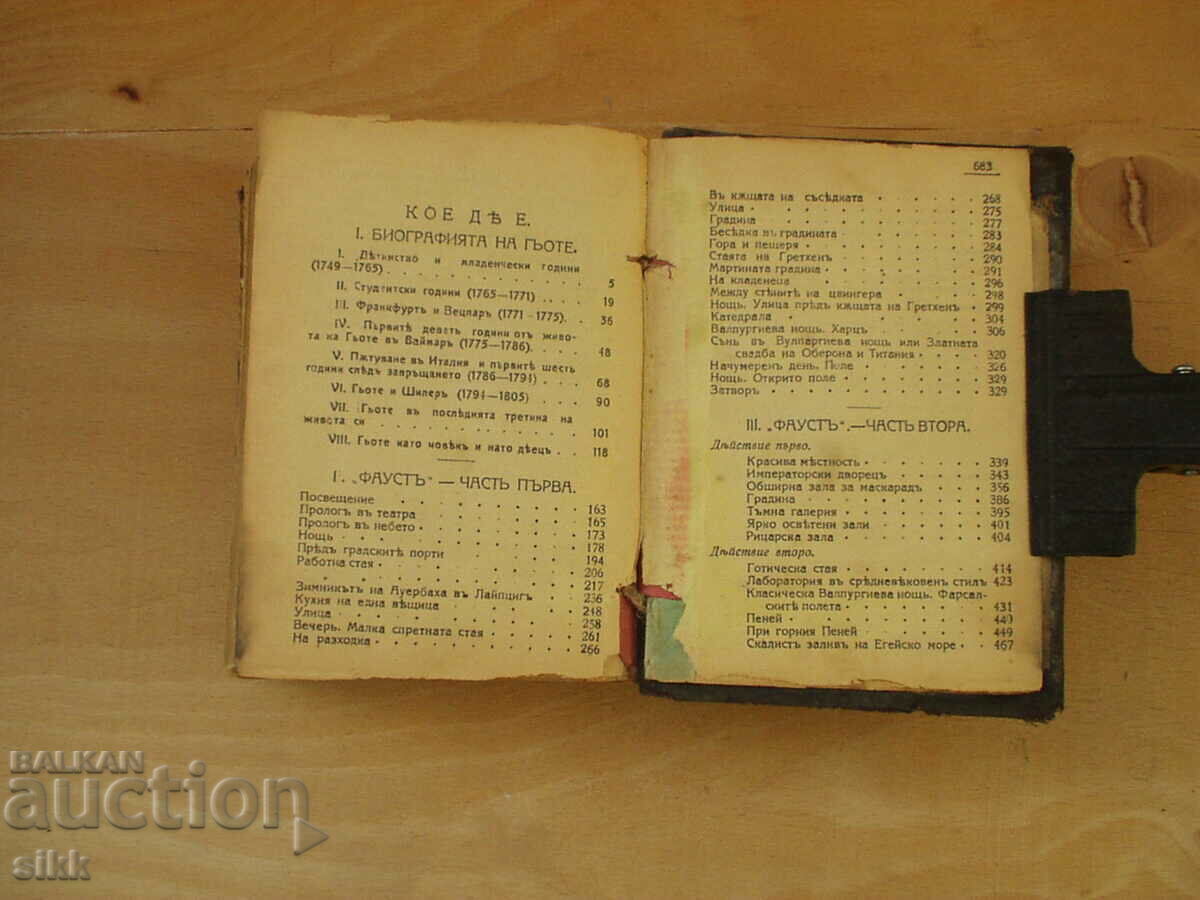 КОЕ ДѢ Е.
I. БИОГРАФИЯТА НА ГЬОТЕ.
I. Дѣтинство и младенчески години
(1749—1765) . . . . . . . . . . . . 5
II. Студентски години (1765—1771) . . . . 19
III. Франкфуртъ и Вецларъ (1771—1775). . 36
IV. Първитѣ деветь години отъ живо-
та на Гьоте въ Ваймаръ (1775—1786). . . . 48
V. Пѫтуване въ Италия и първитѣ шесть
години слѣдъ завръщането (1786—1794) . . . 68
VI. Гьоте и Шилеръ (1794—1805) . . . 90
VII. Гьоте въ послѣдната третина на
живота си . . . . . . . . . . . . 101
VIII. Гьоте като човѣкъ и като дѣецъ . . 118
II. „ФАУСТЪ“ — ЧАСТЬ ПЪРВА.
Посвещение . . . . . . . . 163
Прологъ въ театра . . . . . . . 165
Прологъ въ небето . . . . . . . 173
Нощь . . . . . . . . . . 178
Прѣдъ градскитѣ порти . . . . . 194
Работна стая . . . . . . . . 206
. . . . . . . . . . 217
Зимникътъ на Ауербаха въ Лайпцигъ . . . 236
Кухня на една вѣщица . . . . . . 248
Улица . . . . . . . . . . 258
Вечерь. Малка спретната стая . . . . 261
На разходка . . . . . . . . 266
683
Въ кѫщата на съседката . . . . . 268
Улица . . . . . . . . . . 275
Градина . . . . . . . . . 277
Беседка въ градината . . . . . . 283
Гора и пещеря . . . . . . . . 284
Стаята на Гретхенъ . . . . . . . 290
Мартината градина . . . . . . . 291
На кладенеца . . . . . . . . 296
Между стѣнитѣ на цвингера . . . . . 298
Нощь. Улица прѣдъ кѫщата на Гретхенъ . 299
Катедрала . . . . . . . . . 304
Валпургиева нощь. Харцъ . . . . . 306
Сънь въ Вулпаргиева нощь или Златната
свадба на Оберона и Титания . . . . 320
Начумеренъ день. Поле . . . . . . 326
Нощь. Открито поле . . . . . . 329
Затворъ . . . . . . . . . 329
III. „ФАУСТЪ“.—ЧАСТЬ ВТОРА.
Дѣйствие първо.
Красива мѣстность . . . . . . 339
Императорски дворецъ . . . . . 343
Обширна зала за маскарадъ . . . . 356
Градина . . . . . . . . . 386
Тъмна галерия . . . . . . . 395
Ярко освѣтени зали . . . . . . 401
Рицарска зала . . . . . . . 404
Дѣйствие второ.
Готическа стая . . . . . . . 414
Лаборатория въ срѣдневѣковенъ стилъ 423
Класическа Валпургиева нощь. Фарсал-
скитѣ полета . . . . . . . 431
Пеней . . . . . . . . . 440
При горния Пеней . . . . . . 449
Скалистъ заливъ на Егейско море . . 467
BALKAN
auction
sikk